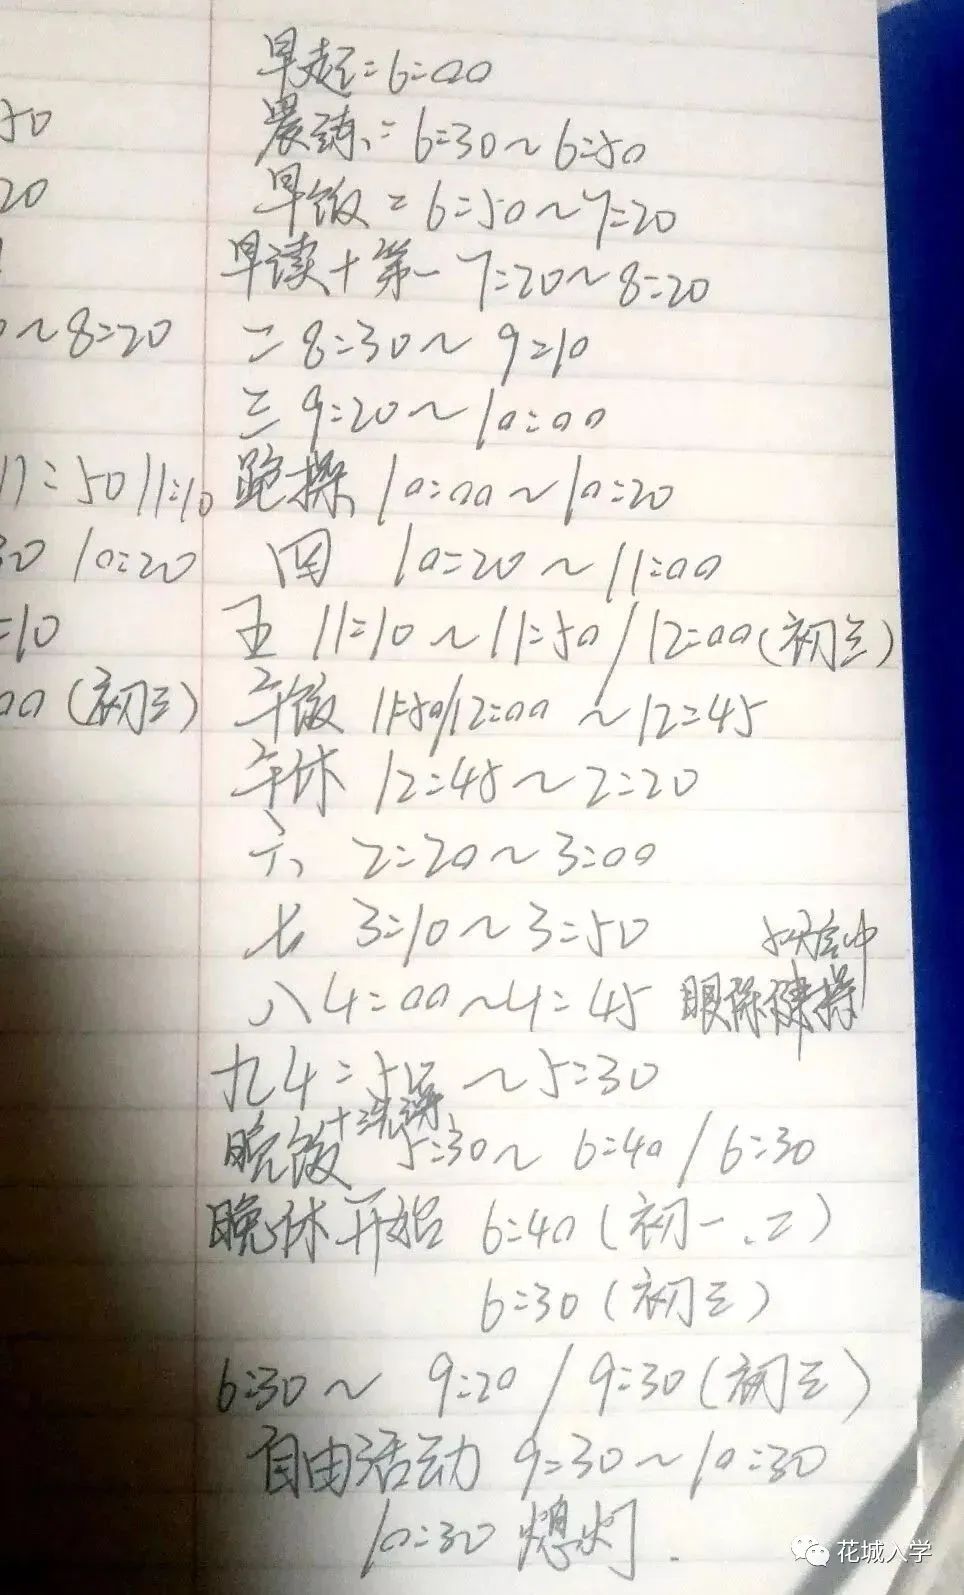 早起:6:00
50
晨练:6:30~6:50
20
早饭:6:50~7:20
早读+第一 7:20~8:20
~8:20
二 8:30~9:10
三 9:20~10:00
11:50 11:10
跑操 10:00~10:20
30 10:20
四 10:20~11:00
:10
五 11:10~11:50/12:00(初三)
00(初三)
午饭 11:50/12:00~12:45
午休 12:45~2:20
六 2:20~3:00
七 3:10~3:50
八 4:00~4:45 眼保健操
九 4:50~5:30
+洗澡
晚饭 5:30~6:40/6:30
晚休开始 6:40(初一、二)
6:30(初三)
6:30~9:20/9:30(初三)
自由活动 9:30~10:30
10:30 熄灯.
花城入学